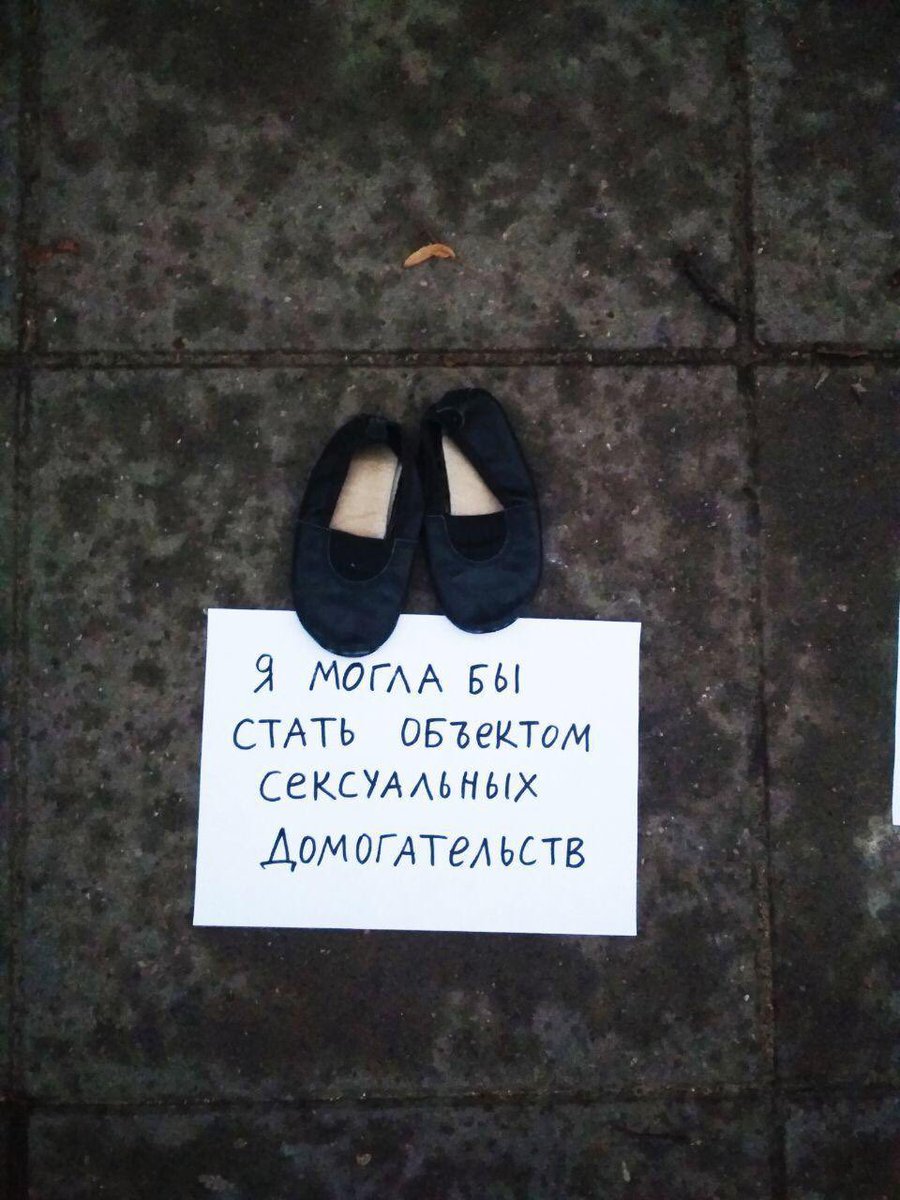 Я МОГЛА БЫ
СТАТЬ ОБЪЕКТОМ
СЕКСУАЛЬНЫХ
ДОМОГАТЕЛЬСТВ